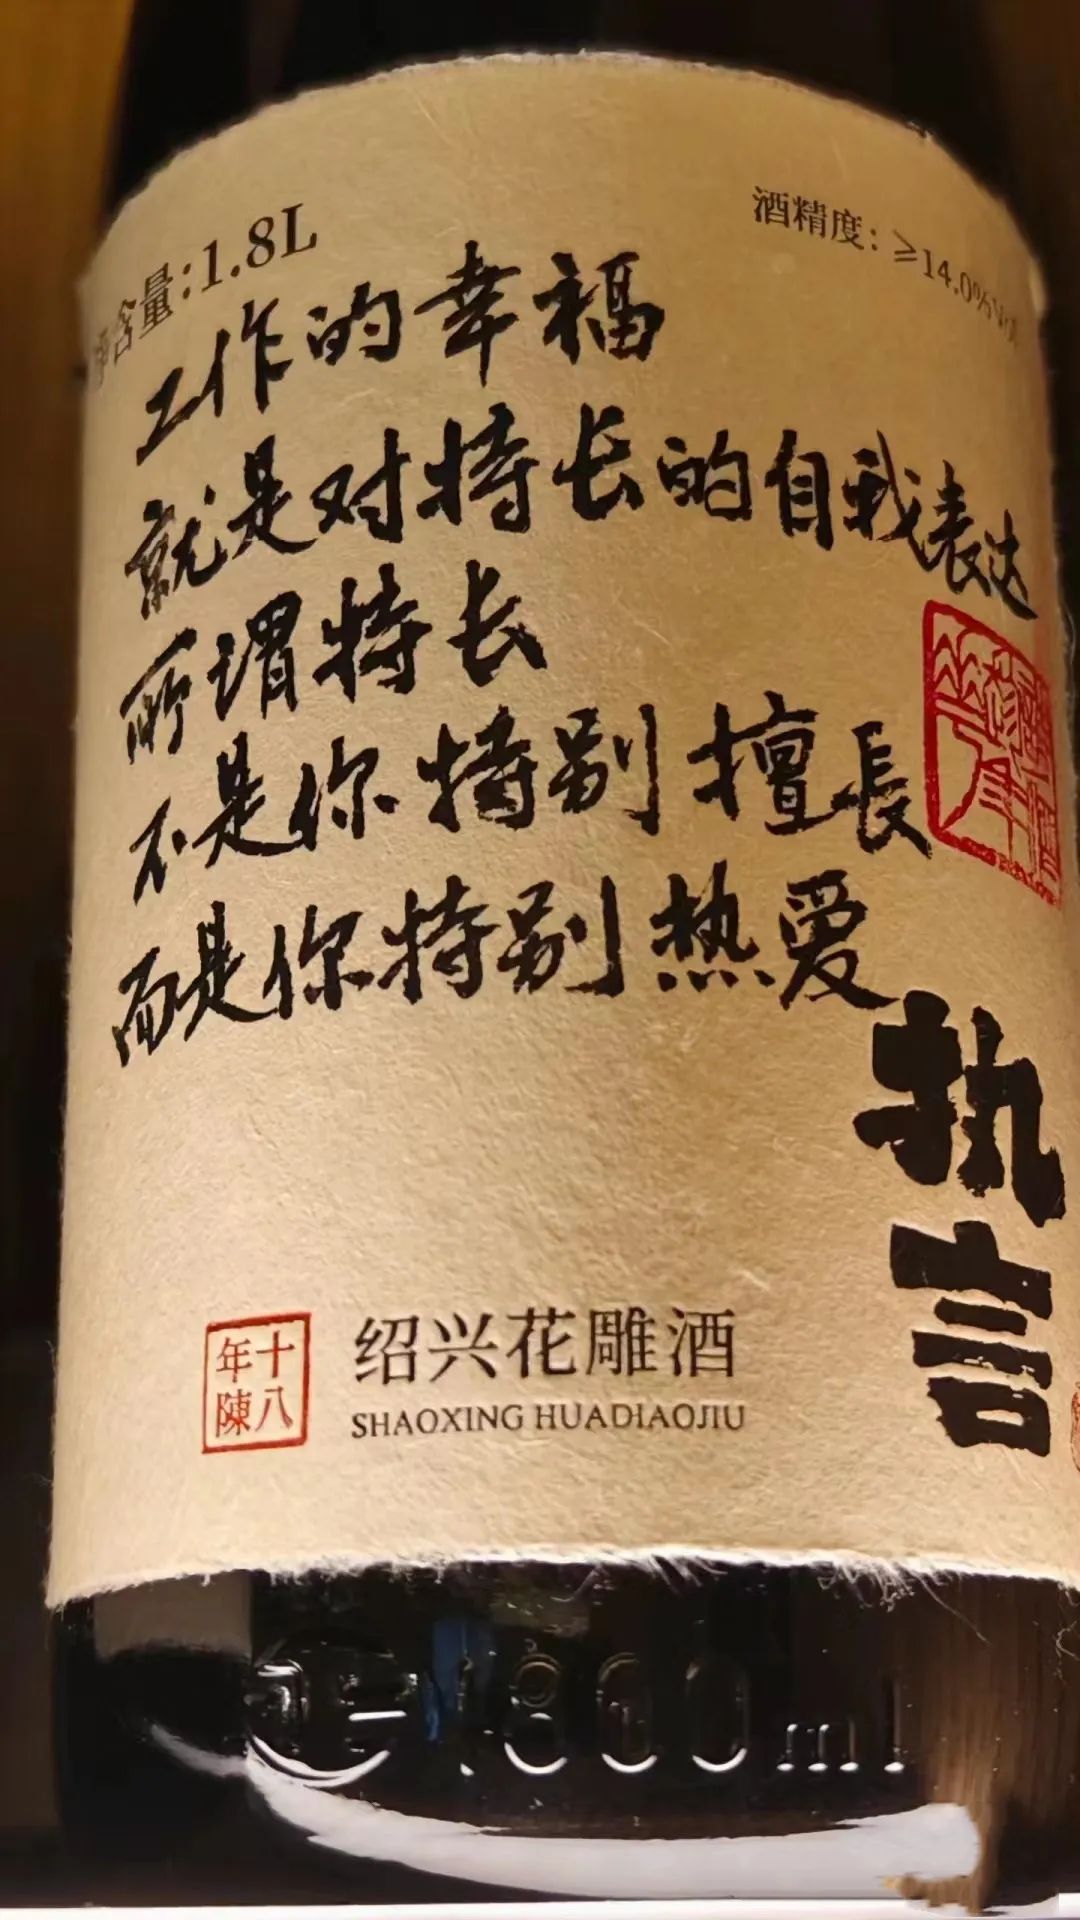 净含量:1.8L
酒精度: ≥14.0%vol
工作的幸福
就是对特长的自我表达
所谓特长
不是你特别擅長
而是你特别热爱
执言
十八年陳
绍兴花雕酒
SHAOXING HUADIAOJIU
1800ml